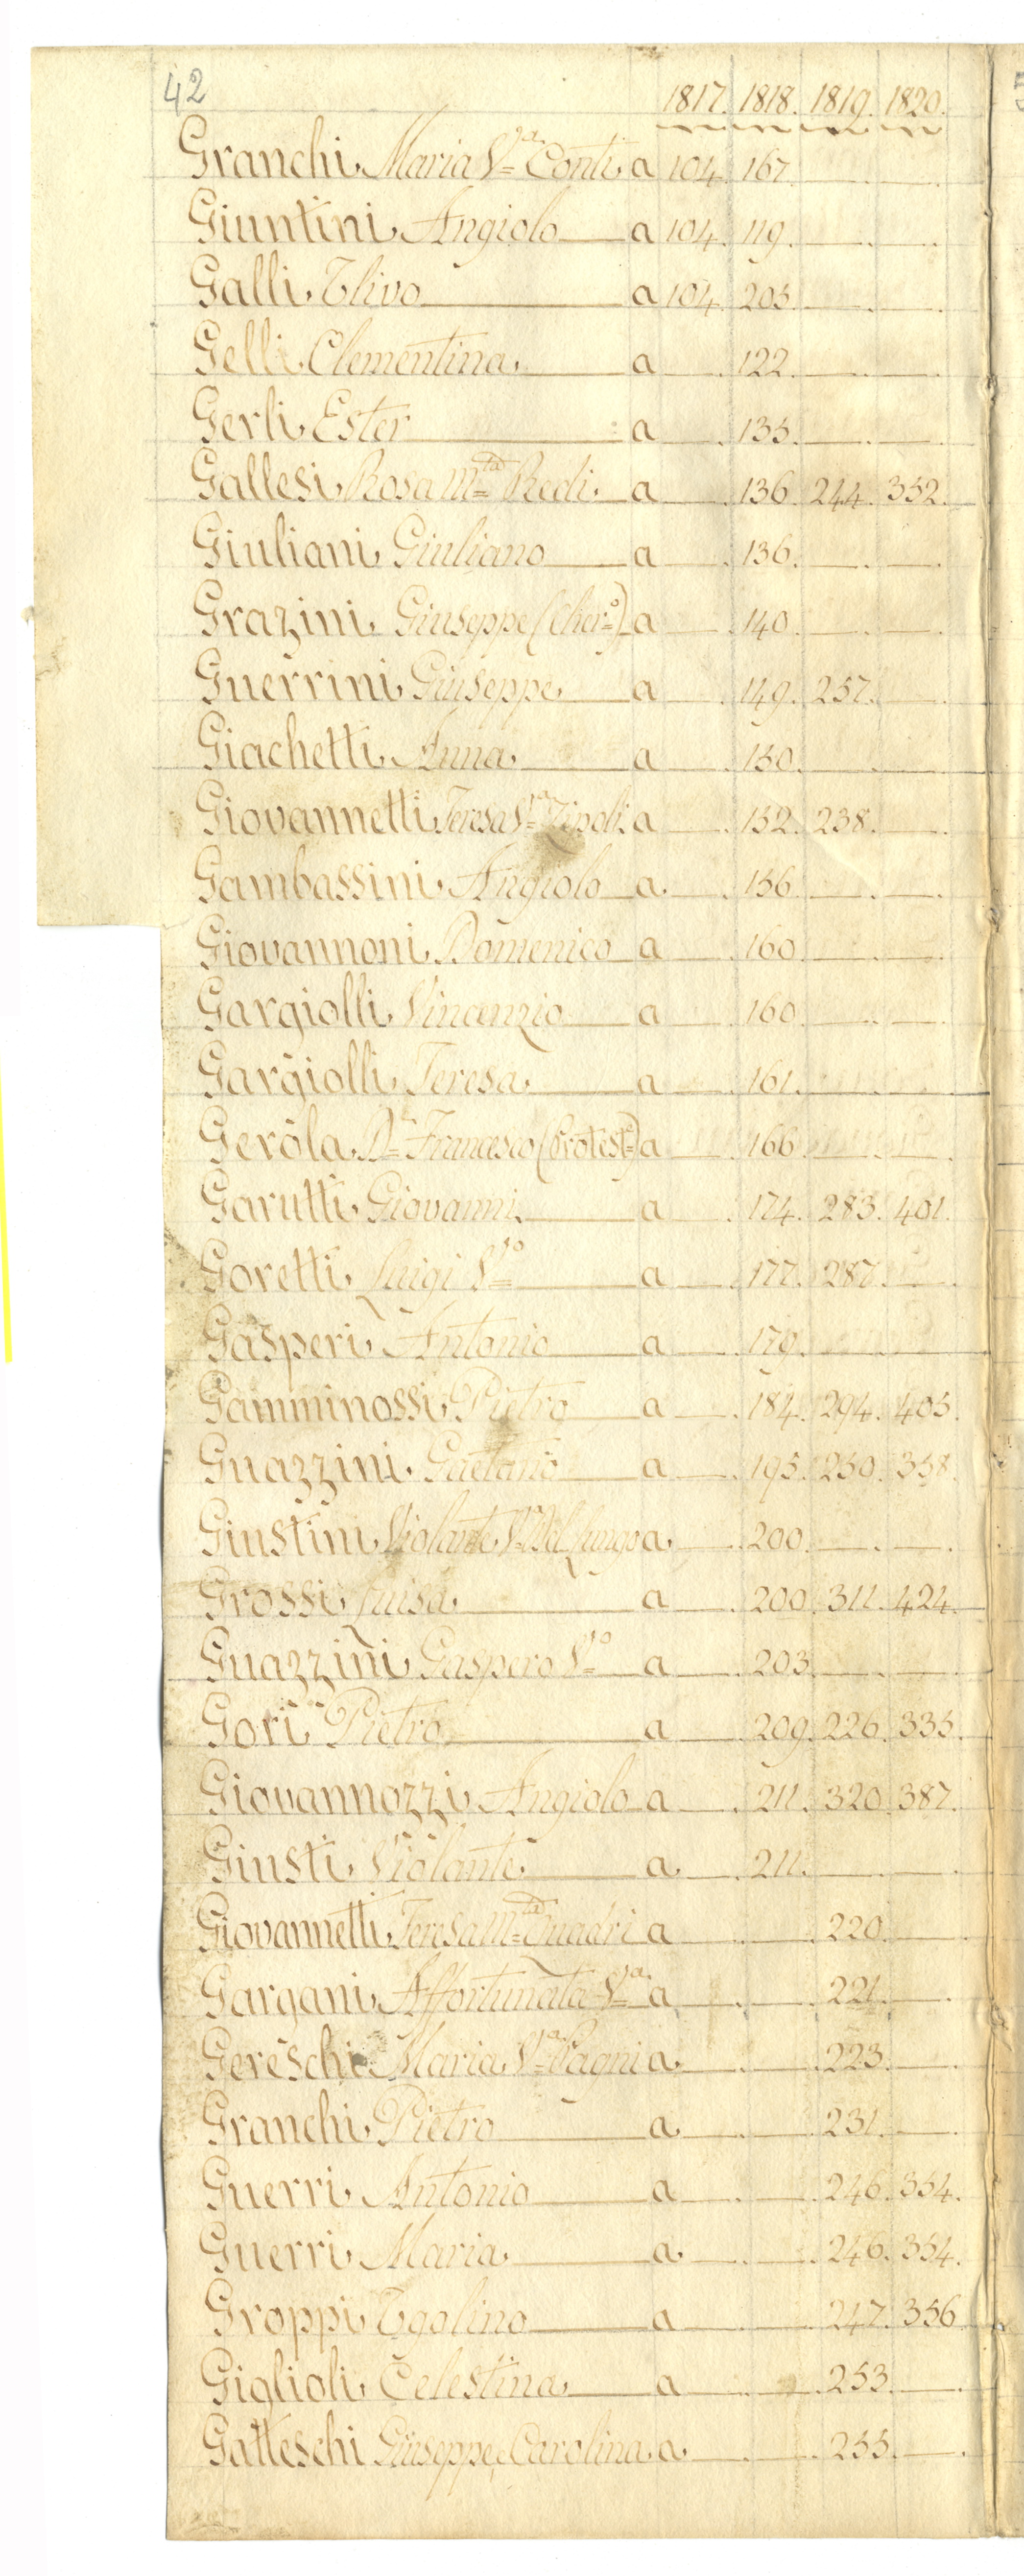 42
1817. 1818. 1819. 1820.
Granchi Maria V.a Conti a 104. 167.
Giuntini Angiolo a 104. 119.
Galli Olivo a 104. 205.
Gelli Clementina a 122.
Gerli Ester a 135.
Gallesi Rosa M.ta Redi a 136. 244. 352.
Giuliani Giuliano a 136.
Grazini Giuseppe (Cher.o) a 140.
Guerrini Giuseppe a 149. 257.
Giachetti Anna a 150.
Giovannetti Teresa V.a Tipoli a 152. 238.
Gambassini Angiolo a 156.
Giovannoni Domenico a 160.
Gargiolli Vincenzio a 160.
Gargiolli Teresa a 161.
Gerola D.r Francesco (Protest.e) a 166.
Garutti Giovanni a 174. 283. 401.
Goretti Luigi V.o a 177. 287.
Gasperi Antonio a 179.
Gamminossi Pietro a 184. 294. 405.
Guazzini Gaetano a 195. 250. 358.
Giustini Violante V.a Del Lungo a 200.
Grossi Luisa a 200. 311. 424.
Guazzini Gaspero V.o a 203.
Gori Pietro a 209. 226. 335.
Giovannozzi Angiolo a 211. 320. 387.
Giusti Violante a 211.
Giovannetti Teresa M.ta Quadri a 220.
Gargani Affortunata V.a a 221.
Gereschi Maria V.a Pagni a 223.
Granchi Pietro a 231.
Guerri Antonio a 246. 354.
Guerri Maria a 246. 354.
Groppi Ugolino a 247. 356
Giglioli Celestina a 253.
Gatteschi Giuseppe Carolina a 255.